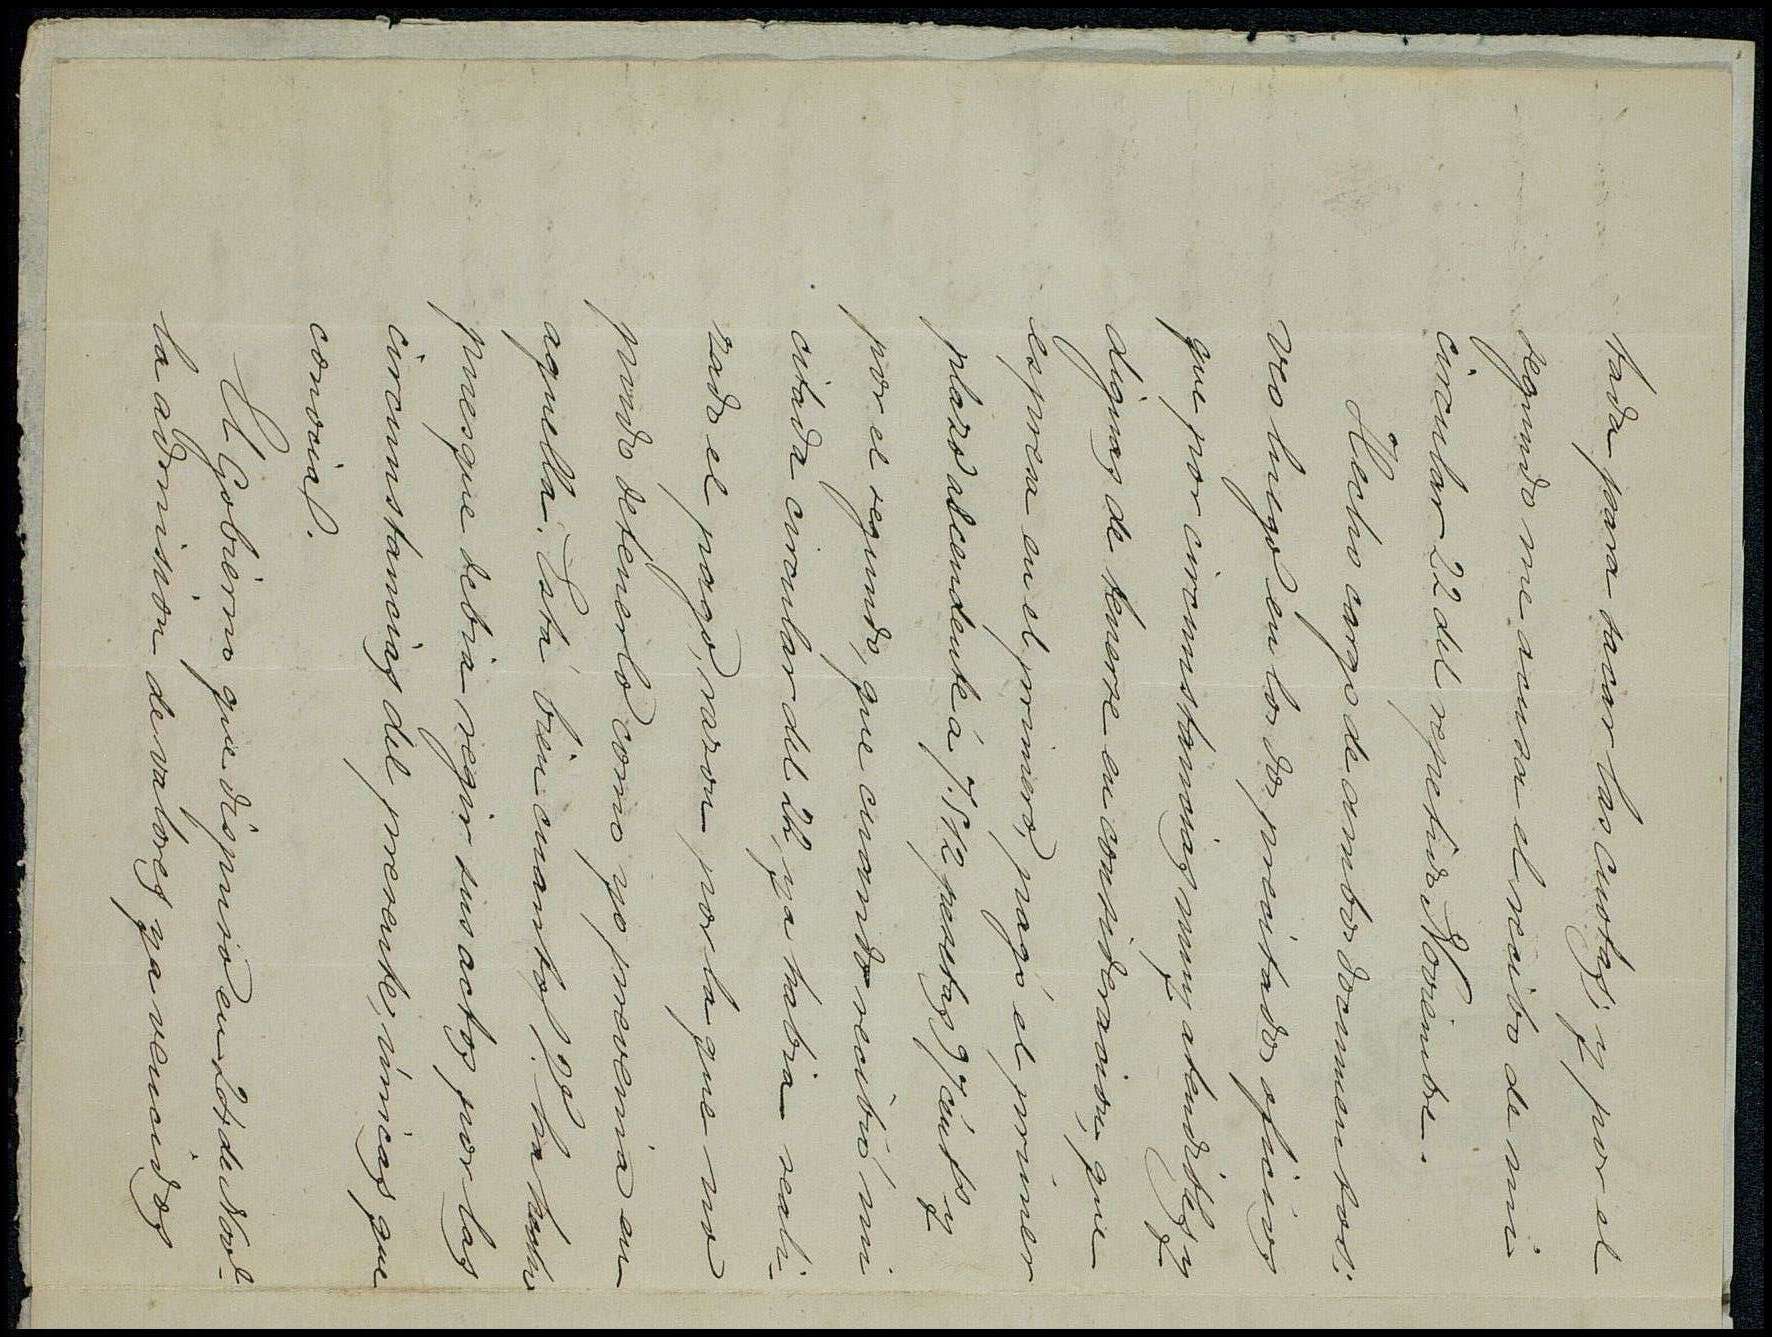 tada para sacar las cuotas; y por el
segundo me acusa el recibo de mi
circular 22 del repetido Noviembre.
Hecho cargo de ambos documentos:
veo luego en los dos precitados oficios
que por circunstancias muy atendibles y
dignas de tenerse en consideracion, que
espresa en el primero, pagó el primer
plazo ascendente á 7.512 pesetas 97 cénts y
por el segundo, que cuando recibió mi
citada circular del 22, ya habia reali-
zado el pago, razon por la que no
pudo detenerlo como yo prevenia en
aquella. Está bien cuanto V. ha hecho
puesque debia regir sus actos por las
circunstancias del presente, únicas que
conocia.
El Gobierno que dispuso en 24 de Nov.e
la admision de valores ya vencidos